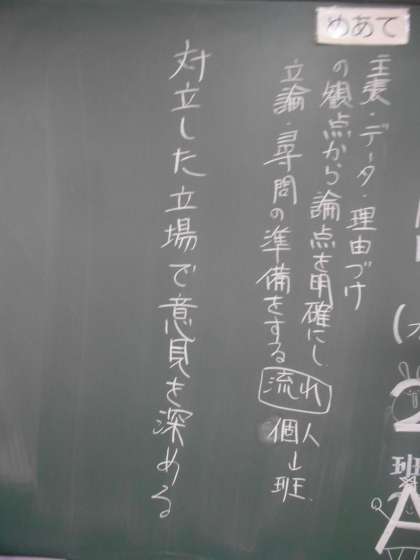 めあて
主張・データ・理由づけ
の観点から論点を明確にし
立論・尋問の準備をする
流れ
個人
↓
班
対立した立場で意見を深める
2
班
A